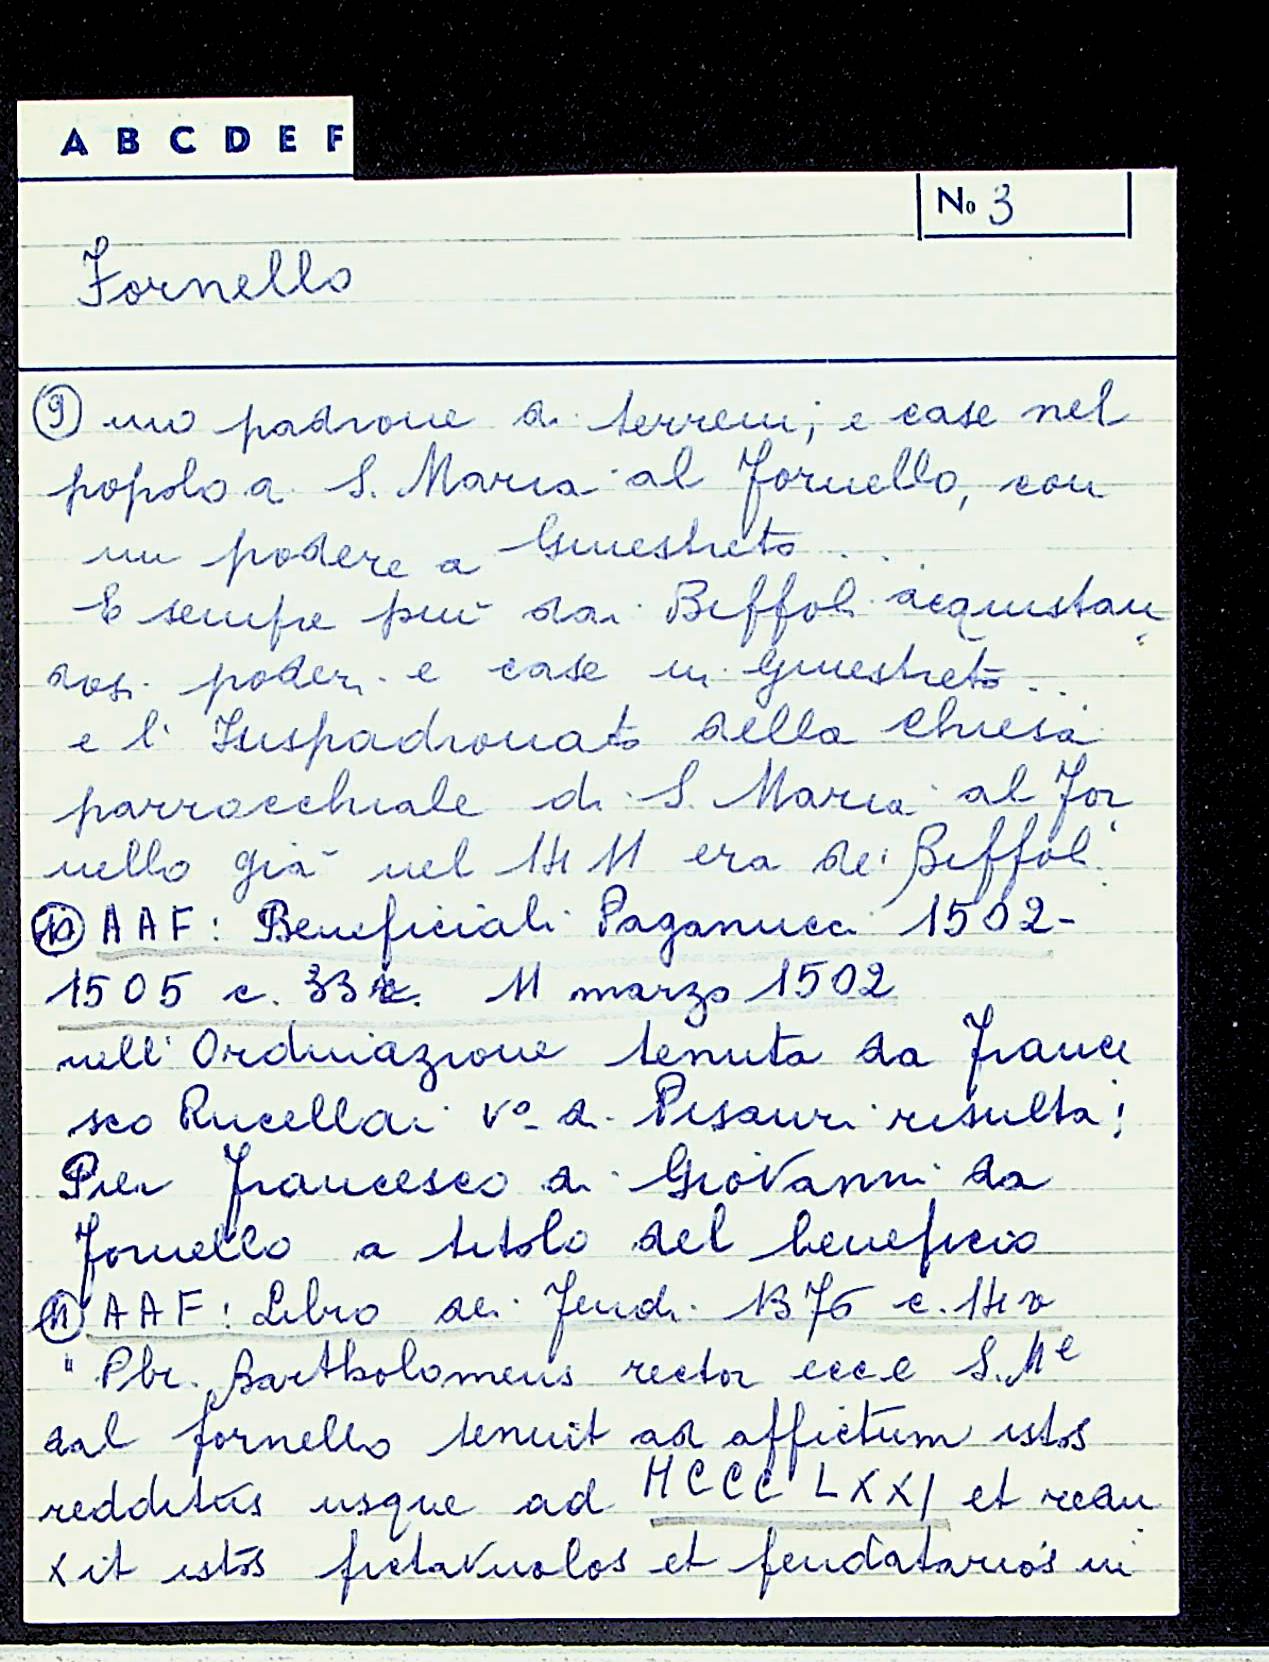 A B C D E F
No 3
Fornello
⑨ no padrone di terreni; e case nel
popolo a S. Maria al Fornello, con
un podere a Ginestreto ...
E sempre più dai Biffoli acquistan
dosi poderi e case in Ginestreto...
e l' Iuspadronato della Chiesa
parrocchiale di S. Maria al For
nello già nel 1411 era dei Biffoli
⑩ AAF: Beneficiali Paganucci 1502-
1505 c. 33 r. 11 marzo 1502
nell' Ordinazione tenuta da France
sco Rucellai Vº di Pisauri risulta:
Pier Francesco di Giovanni da
Fornello a titolo del beneficio
⑪ AAF: Libro dei Feudi 1376 c. 14v
" Pbr. Bartholomeus rector ecc.e S. Me
dal fornello tenuit ad affictum istos
redditus usque ad MCCC LXXI et
xit istos et feudatarios in